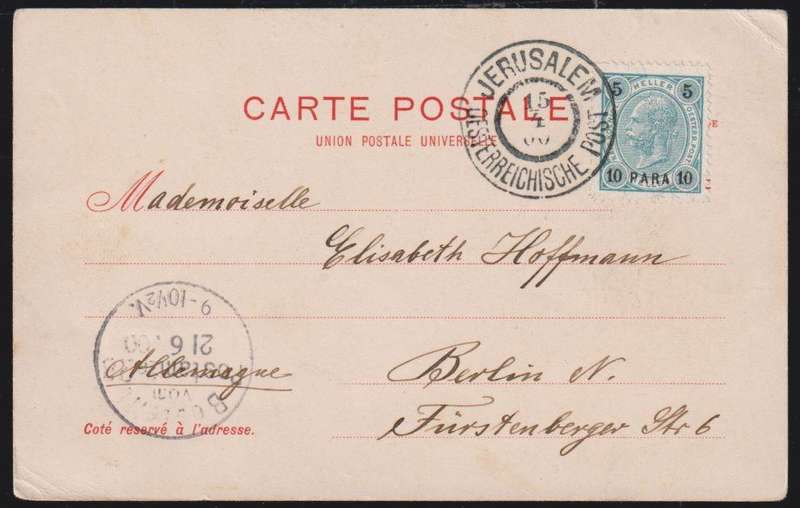 CARTE POSTALE
UNION POSTALE UNIVERSELLE
JERUSALEM
15
4
00
OESTERREICHISCHE POST
5 HELLER 5
OESTERR. POST
10 PARA 10
Mademoiselle
Elisabeth Hoffmann
9-10½V.
21 6 00
vom
Allemagne
Berlin N.
Fürstenberger Str 6
Coté réservé à l'adresse.